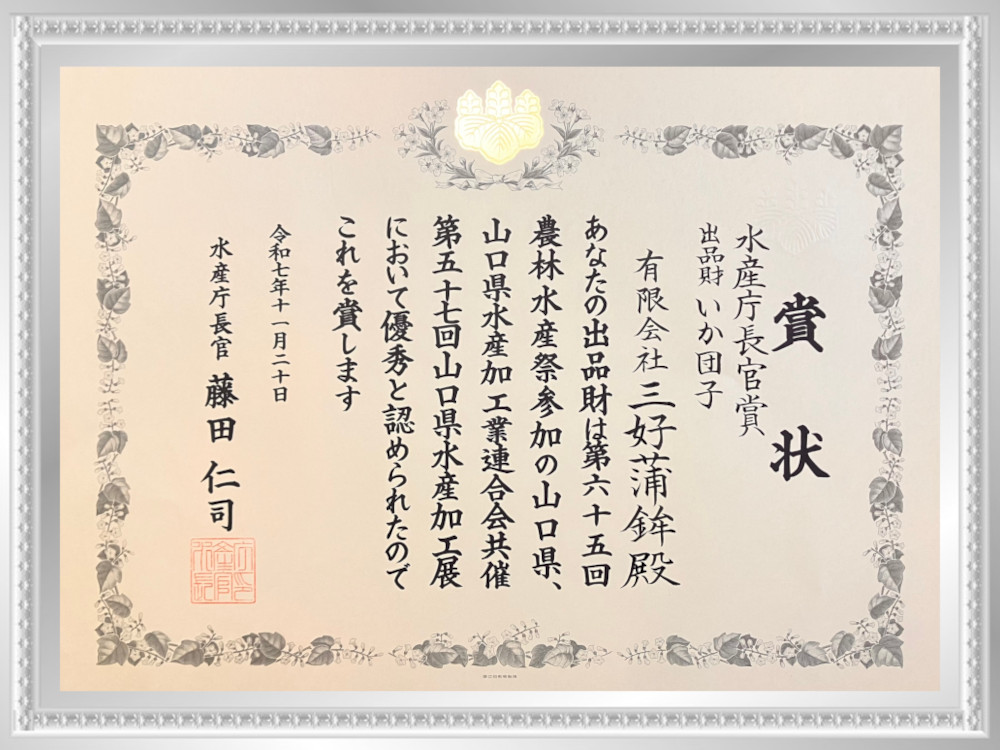 賞状
水産庁長官賞
出品財 いか団子
有限会社 三好蒲鉾殿
あなたの出品財は第六十五回
農林水産祭参加の山口県、
山口県水産加工業連合会共催
第五十七回山口県水産加工展
において優秀と認められたので
これを賞します
令和七年十一月二十日
水産庁長官 藤田 仁司